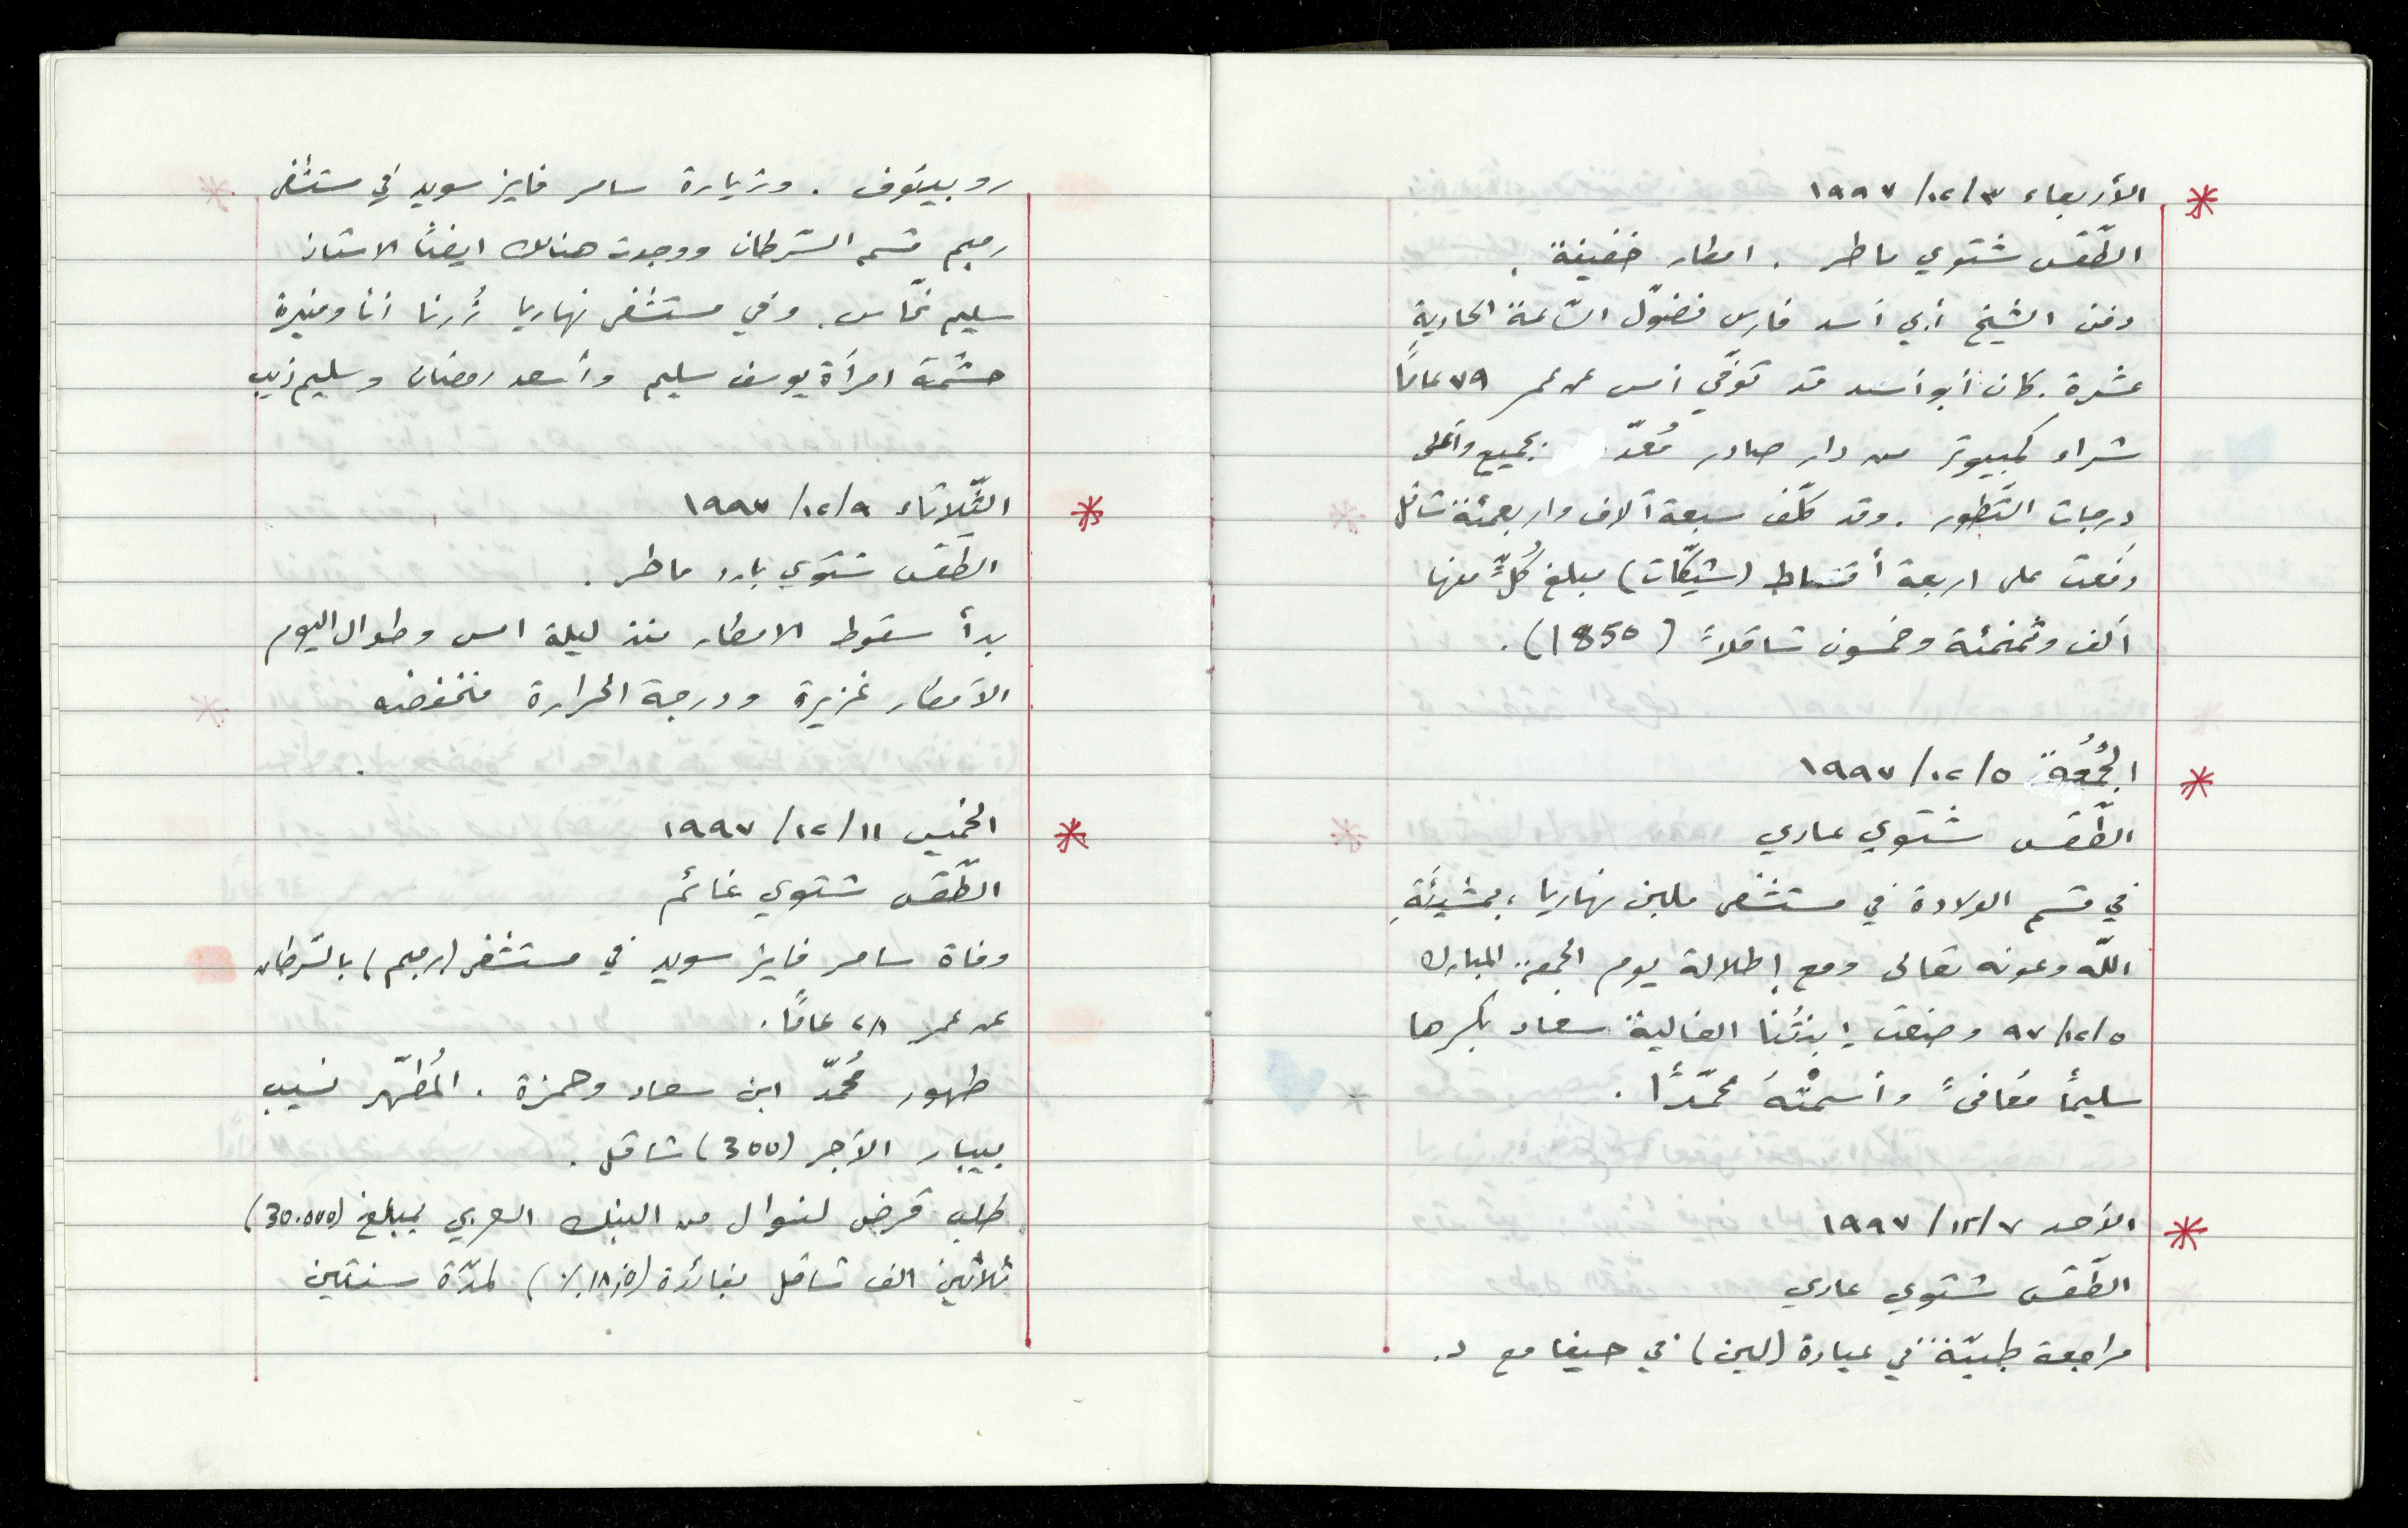 الأربعاء ١٩٩٧/١٢/٣
الطّقس شتوي ماطر . امطار خفيفة .
دفن الشيخ أبي أسد فارس فضّول السّاعة الحادية
عشرة . كان أبو أسد قد توفّي أمس عن عمر ٧٩ عامًا
شراء كمبيوتر من دار صادر مُعدّ بجميع وأعلى
درجات التّطور . وقد كلّف سبعة آلاف واربعمئة شاقل
دفعت على اربعة أقساط (شيكّات) مبلغ كُلٍّ منها
ألف وثمنمئة وخمسون شاقلاً (1850) .
الجُمُعة ١٩٩٧/١٢/٥
الطّقس شتوي عادي
في قسم الولادة في مستشفى ملبن نهاريا ، بمشيئَةِ
اللّه وعونه تعالى ومع إطلالة يوم الجمعة المبارك
٩٧/١٢/٥ وضعت إبنتُنا الغالية سعاد بكرها
سليمًا مُعافىً وأسمتْهُ محمّدًا .
الأحد ١٩٩٧/١٢/٧
الطّقس شتوي عادي
مراجعة طبيّة في عيادة (لين) في حيفا مع د.
روبينوف . وزيارة سامر فايز سويد في مستشفى
رمبم قسم السّرطان ووجدت هناك ايضًا الاستاذ
سليم نحّاس . وفي مستشفى نهاريا زُرنا أنا ومنيرة
حشمة امرأة يوسف سليم وأسعد رمضان وسليم ذيب
الثّلاثاء ١٩٩٧/١٢/٩
الطّقس شتوي بارد ماطر .
بدأ سقوط الامطار منذ ليلة امس وطوال اليوم
الأمطار غزيرة ودرجة الحرارة منخفضه
.
الخميس ١٩٩٧/١٢/١١
الطّقس شتوي غائم
وفاة سامر فايز سويد في مستشفى (رمبم) بالسّرطان
عن عمر ٢٨ عامًا .
طهور مُحمّد ابن سعاد وحمزة . المُطهّر نسيب
بيبار الأجر (300) شاقل .
طلب قرض لنوال من البنك العربي بمبلغ (30.000)
ثلاثين الف شاقل بفائدة (١٨٫٥٪) لمدّة سنتين